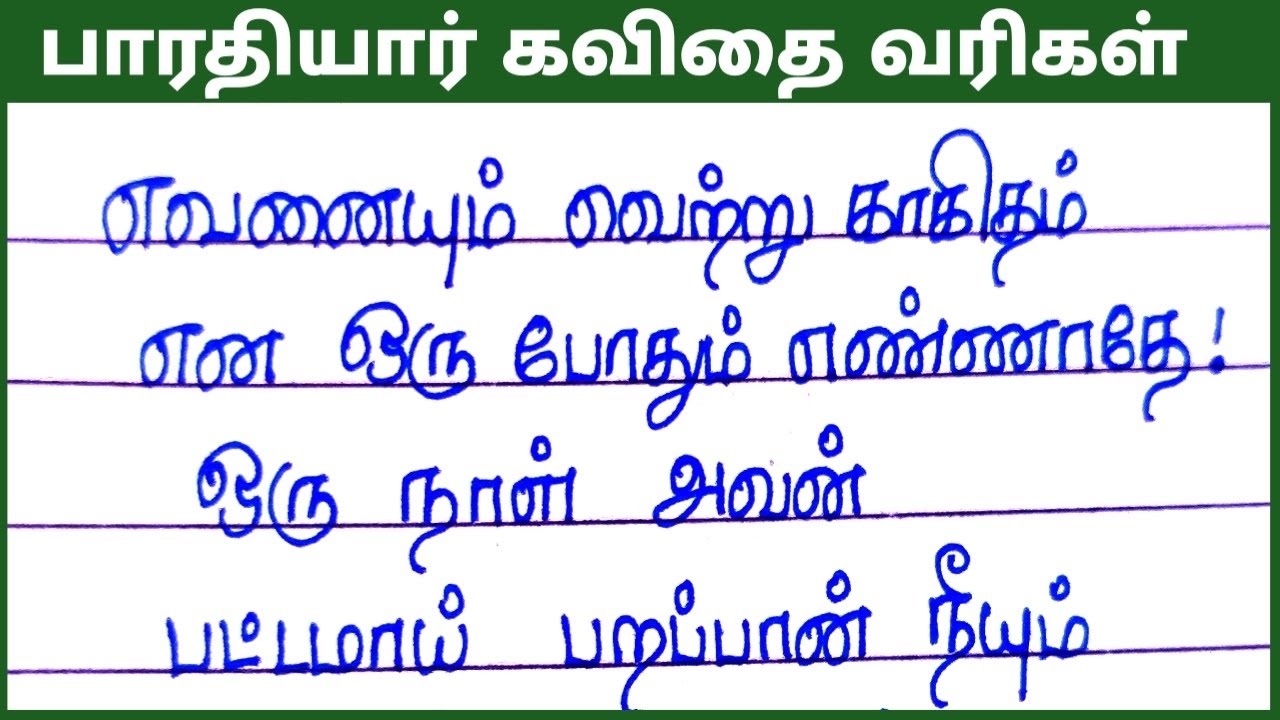 பாரதியார் கவிதை வரிகள்
எவணையும் வெற்று காகிதம்
என ஒரு போதும் எண்ணாதே!
ஒரு நாள் அவன்
பட்டமாய் பறப்பான் நீயும்